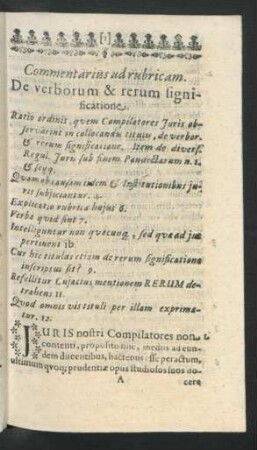 [1]
Commentarius ad rubricam.
De verborum & rerum signi-
ficatione.
Ratio ordinis, quem Compilatores Juris ob-
servârint in collocando titulo, de verbor.
& rerum significatione. Item de divers.
Regul. Juris sub finem Pandectarum n. 1.
& seqq.
Quam ob causam iidem & Institutionibus ju-
ris subjiciantur. 4.
Explicatio rubricæ hujus 6.
Verba quid sint 7.
Intelliguntur non quæcunq, sed quæ ad jus
pertinent ib.
Cur hic titulus etiam de rerum significatione
inscriptus sit? 9.
Refellitur Cujacius mentionem RERUM de-
trahens 11.
Quod omnis vis tituli per illam exprima-
tur. 12.
JURIS nostri Compilatores non 1
contenti, proposito sine, medus ad eun-
dem ducentibus, hactenus esse peractum,
ultimum quoq; prudentiæ opus studiosos suos do-
A cere